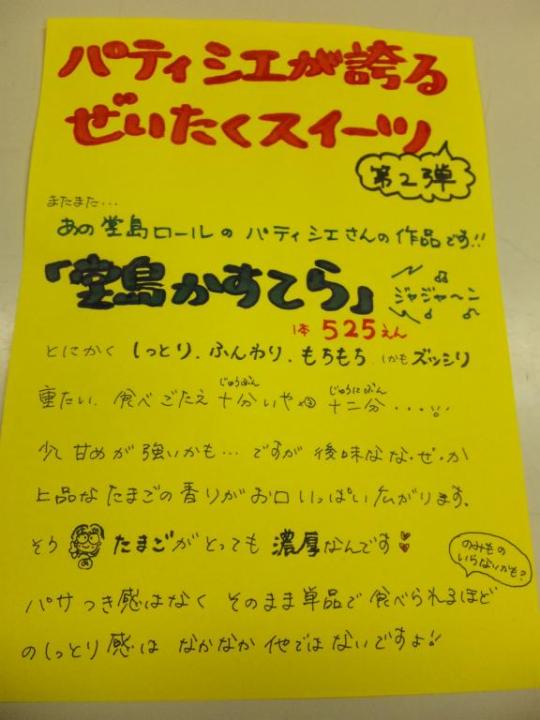 パティシエが誇る
ぜいたくスイーツ
第2弾
またまた…
あの堂島ロールの パティシエさんの作品です!!
「堂島かすてら」
ジャジャ〜ン
1本 525えん
とにかく しっとり、ふんわり、もちもち しかも ズッシリ
重たい、食べごたえ 十分いや 十二分・・・
じゅうぶん じゅうにぶん
少し甘めが強いかも… ですが 後味なな・ぜ・か
上品な たまごの香りがお口いっぱい広がります。
そう たまごが とっても 濃厚なんです
のみもの
いらないかも?
パサつき感はなく そのまま単品で 食べられるほど
のしっとり感は なかなか 他ではないですよ!